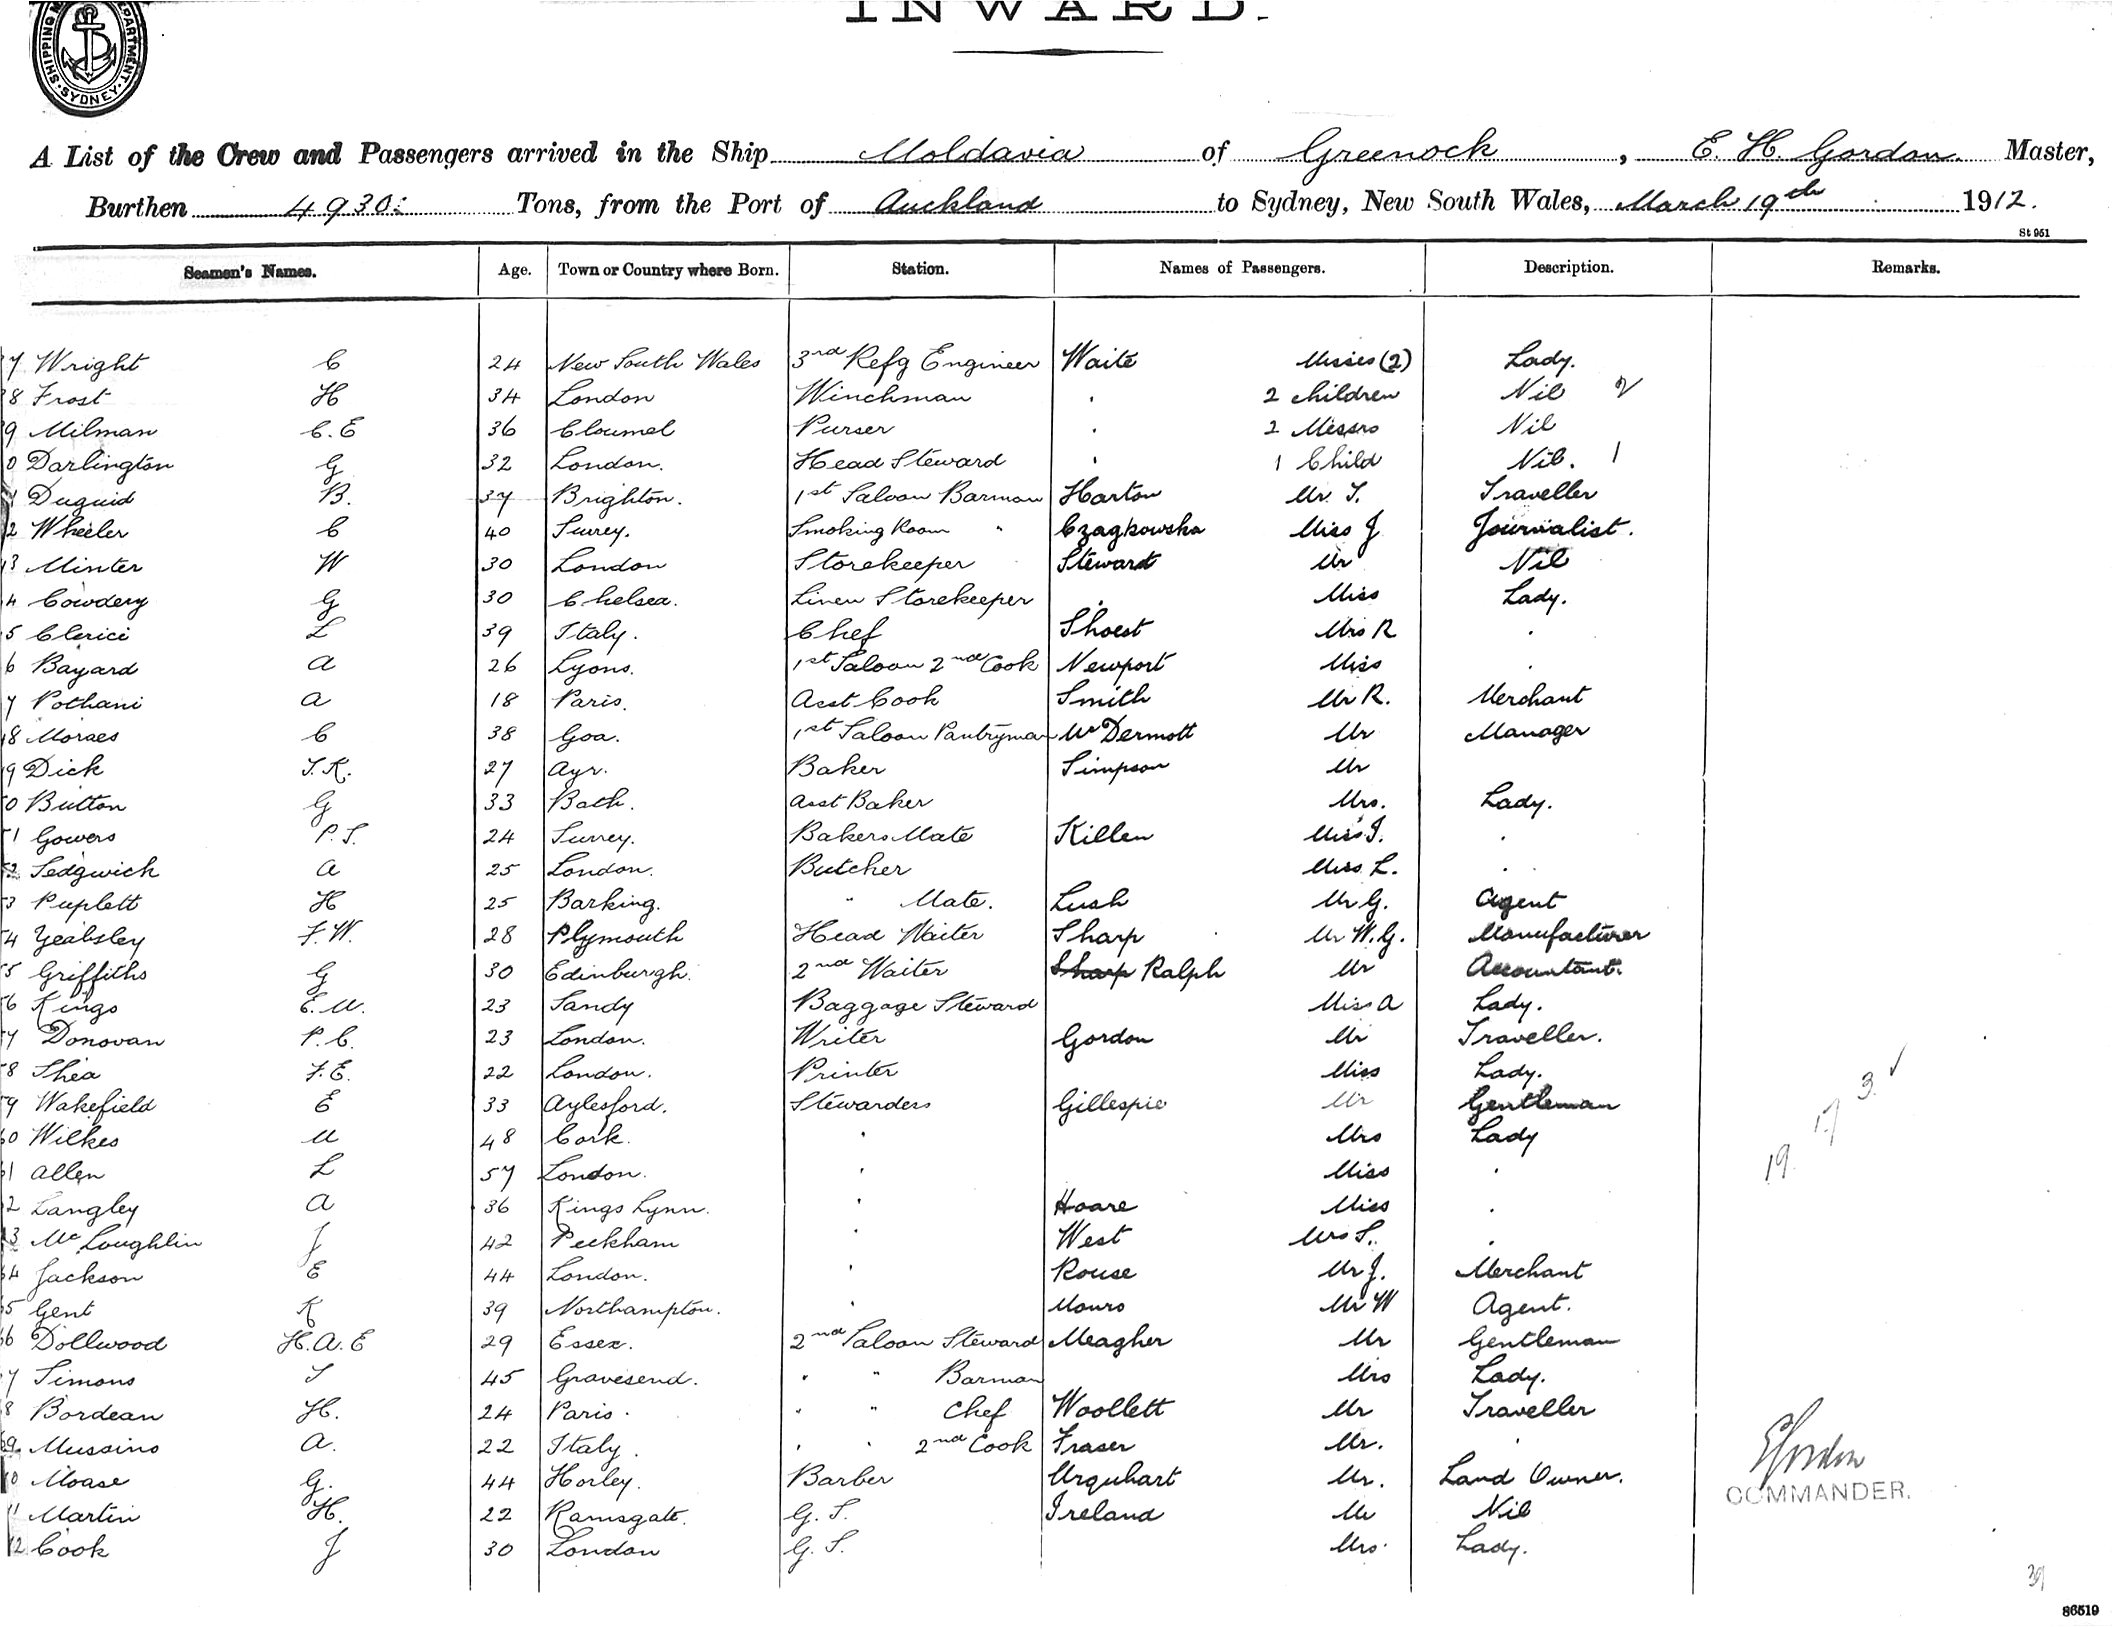 INWARD.
SHIPPING DEPARTMENT SYDNEY
A List of the Crew and Passengers arrived in the Ship Moldavia of Greenock, E. H. Gordon. Master,
Burthen 4930 Tons, from the Port of Auckland to Sydney, New South Wales, March 19th 1912.
St 951
Seamen's Names. Age. Town or Country where Born. Station. Names of Passengers. Description. Remarks.
7 Wright C 24 New South Wales 3rd Refg Engineer Waite Misses (2) Lady.
8 Frost H 34 London Winchman 2 children Nil 2
9 Milman C. E 36 Cloumel Purser 2 Messrs Nil
0 Darlington G 32 London. Head Steward 1 Child Nil. 1
1 Duguid B. 37 Brighton. 1st Saloon Barman Harton Mr. T. Traveller
2 Wheeler C 40 Surrey. Smoking Room " Czagkowska Miss J Journalist.
3 Minter W 30 London Storekeeper Steward Mr Nil
4 Cowdery G 30 Chelsea. Linen Storekeeper Miss Lady.
5 Clerici L 39 Italy. Chef Shoest Mrs R
6 Bayard A 26 Lyons. 1st Saloon 2nd Cook Newport Miss
7 Pothani A 18 Paris. Asst Cook Smith Mr R. Merchant
8 Moraes C 38 Goa. 1st Saloon Pantryman McDermott Mr Manager
9 Dick T. K. 27 Ayr. Baker Simpson Mr
0 Button G 33 Bath. Asst Baker Mrs. Lady.
1 Gowers P. S. 24 Surrey. Bakers Mate Killen Miss I.
2 Sedgwick A 25 London. Butcher Miss L.
3 Puplett H 25 Barking. " Mate. Lush Mr G. Agent
4 Yeabsley F. W. 28 Plymouth Head Waiter Sharp Mr W. G. Manufacturer
5 Griffiths G 30 Edinburgh. 2nd Waiter Sharp Ralph Mr Accountant.
6 Kings E. M. 23 Sandy Baggage Steward Miss A Lady.
7 Donovan P. C. 23 London. Writer Gordon Mr Traveller.
8 Shea F. E. 22 London. Printer Miss Lady.
9 Wakefield E 33 Aylesford. Stewardess Gillespie Mr Gentleman
60 Wilkes M 48 Cork. Mrs Lady
61 Allen L 57 London. Miss
2 Langley A 36 Kings Lynn. Hoare Miss
3 McLoughlin J 42 Peckham West Mrs S.
64 Jackson E 44 London. Rouse Mr J. Merchant
65 Gent K 39 Northampton. Mours Mr W Agent.
66 Dollwood H. A. E 29 Essex. 2nd Saloon Steward Meagher Mr Gentleman
7 Simons T 45 Gravesend. " " Barman Mrs Lady.
8 Bordean H. 24 Paris. " " Chef Woollett Mr Traveller
69 Mussino A. 22 Italy. " " 2nd Cook Fraser Mr.
70 Moase G. 44 Horley. Barber Urquhart Mr. Land Owner.
11 Martin H. 22 Ramsgate. G. S. Ireland Mr Nil
12 Cook J 30 London G. S. Mrs. Lady.
19. 17 3
EGordon
COMMANDER.
39
86519